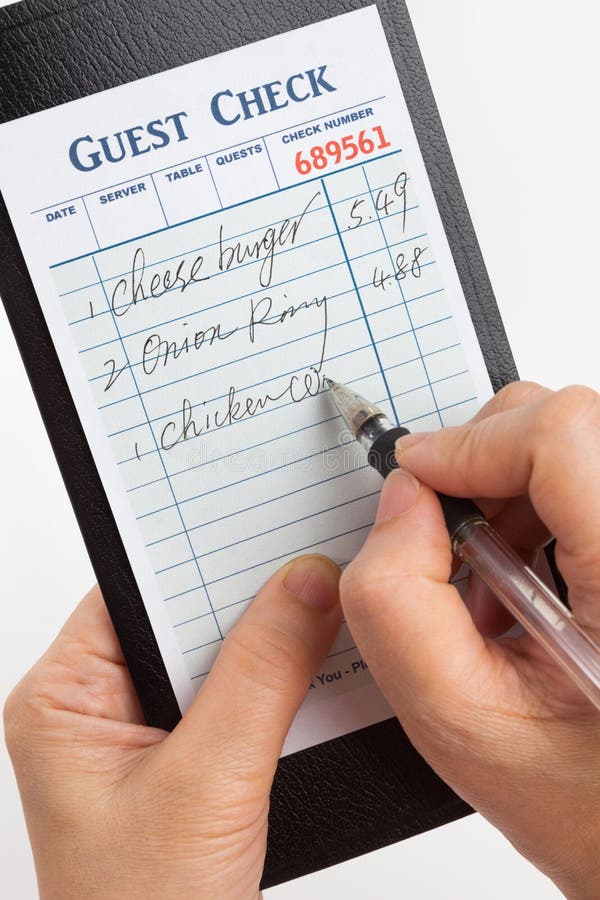 GUEST CHECK
DATE SERVER TABLE QUESTS CHECK NUMBER
689561
1 cheese burger 5.49
2 Onion Ring 4.88
1 chicken
k You - Pl
dreamstime